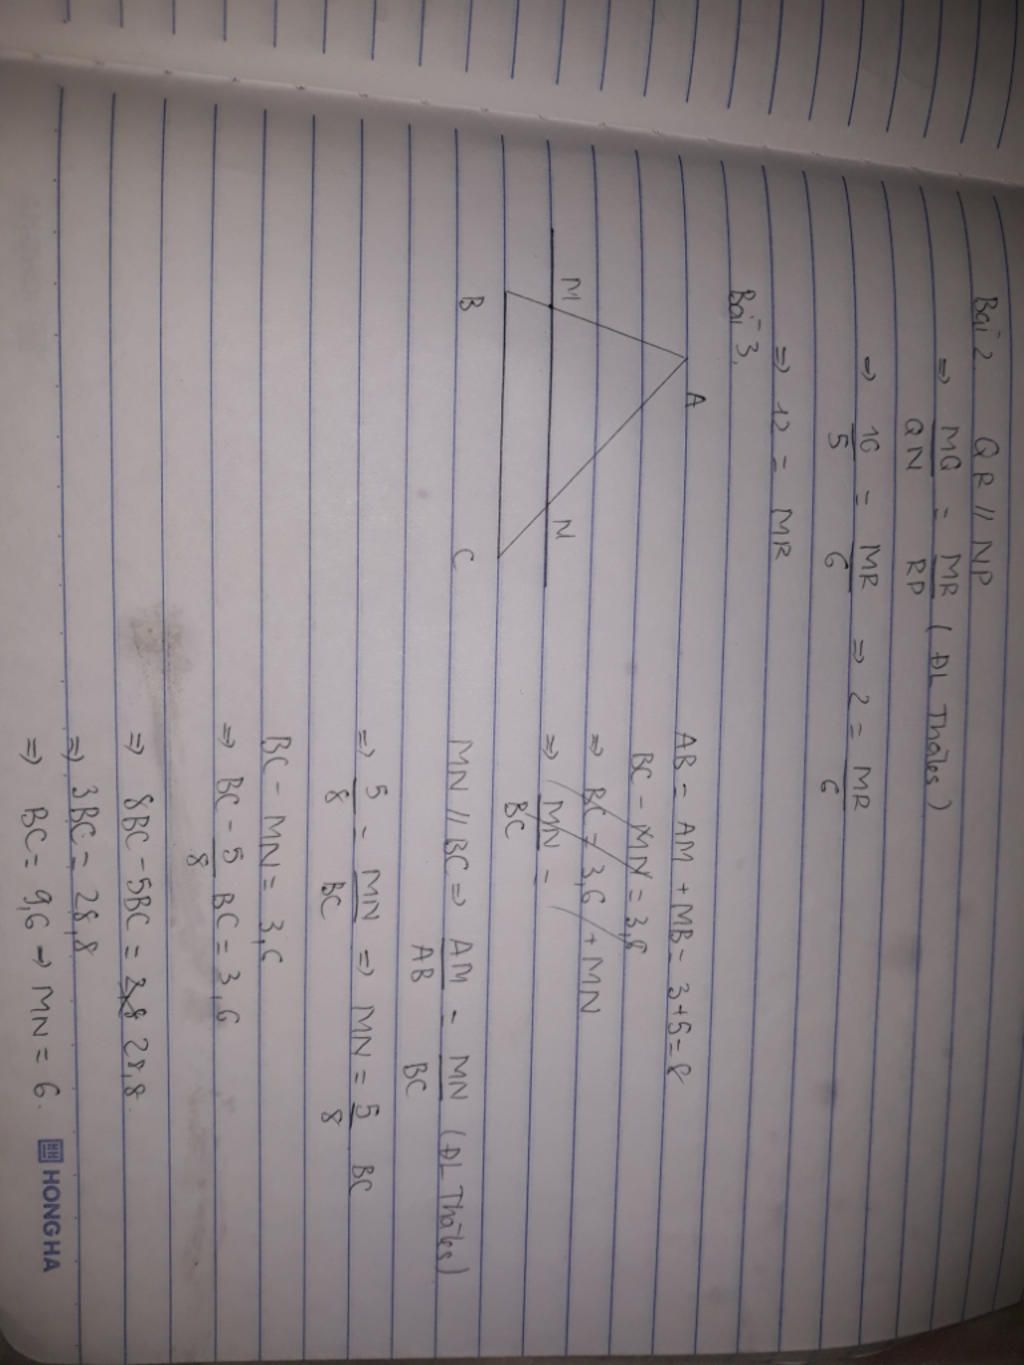 Bài 2. QR // NP
=> MQ/QN = MR/RP (ĐL Thales)
=> 10/5 = MR/6 => 2 = MR/6
=> 12 = MR
Bài 3.
A
M
N
B
C
AB = AM + MB = 3+5 = 8
BC - MN = 3,6
=> BC = 3,6 + MN
=> MN/BC =
MN // BC => AM/AB = MN/BC (ĐL Thales)
=> 5/8 = MN/BC => MN = 5/8 BC
BC - MN = 3,6
=> BC - 5/8 BC = 3,6
=> 8BC - 5BC = 28,8
=> 3BC = 28,8
=> BC = 9,6 -> MN = 6.
HONG HA